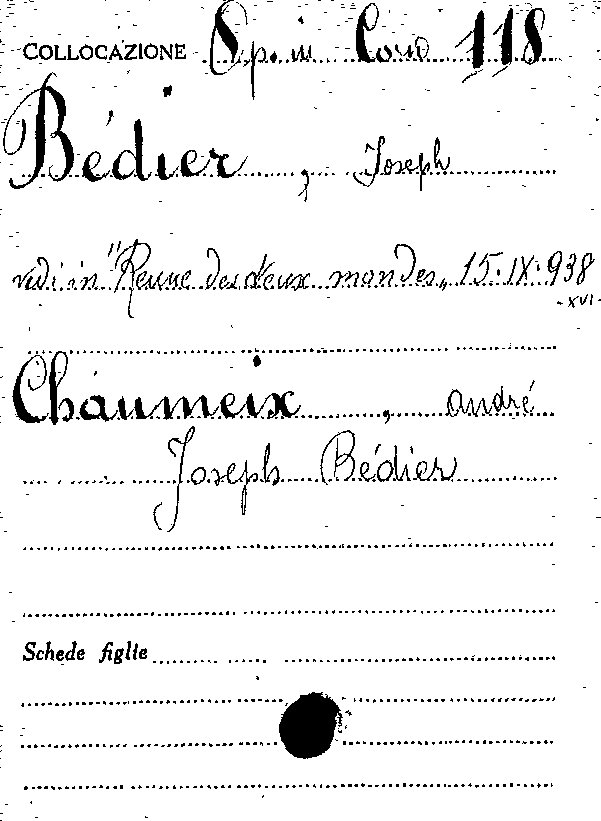 COLLOCAZIONE Op. in Cons 118
Bédier, Joseph
vedi in "Revue des deux mondes„ 15.IX.938
-XVI-
Chaumeix, André
Joseph Bédier
Schede figlie